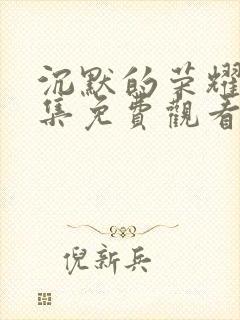 沉默的荣耀
集免費觀看
倪新兵